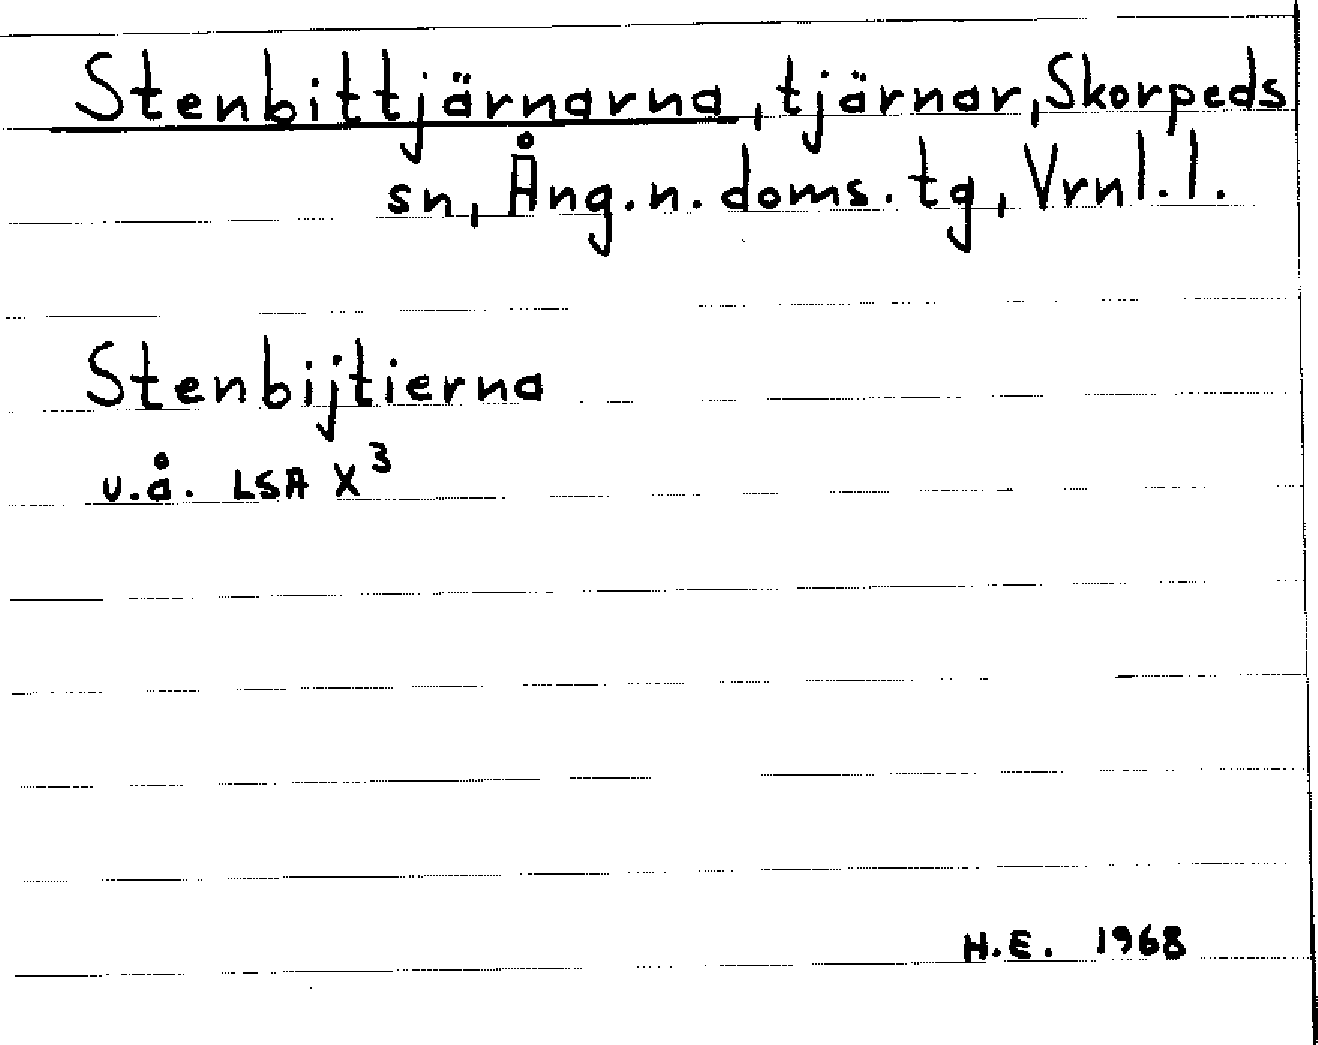 Stenbittjärnarna, tjärnar, Skorpeds
sn, Ång.n.doms.tg, Vrnl.l.
Stenbijtierna
u.å. LSA X³
H.E. 1968